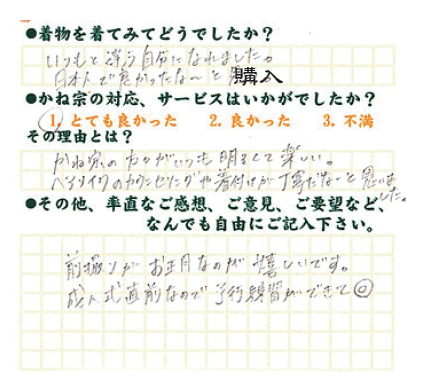 ●着物を着てみてどうでしたか？
いつもと違う自分になれました。
日本人で良かったな〜と購入
●かね宗の対応、サービスはいかがでしたか？
1. とても良かった 2. 良かった 3. 不満
その理由とは？
かね宗の方々がいつも明るくて楽しい。
ヘアメイクのカウンセリングや着付けが丁寧だな〜と思いました。
●その他、率直なご感想、ご意見、ご要望など、
なんでも自由にご記入下さい。
前撮りがお正月なのが嬉しいです。
成人式直前なので予行練習ができて◎